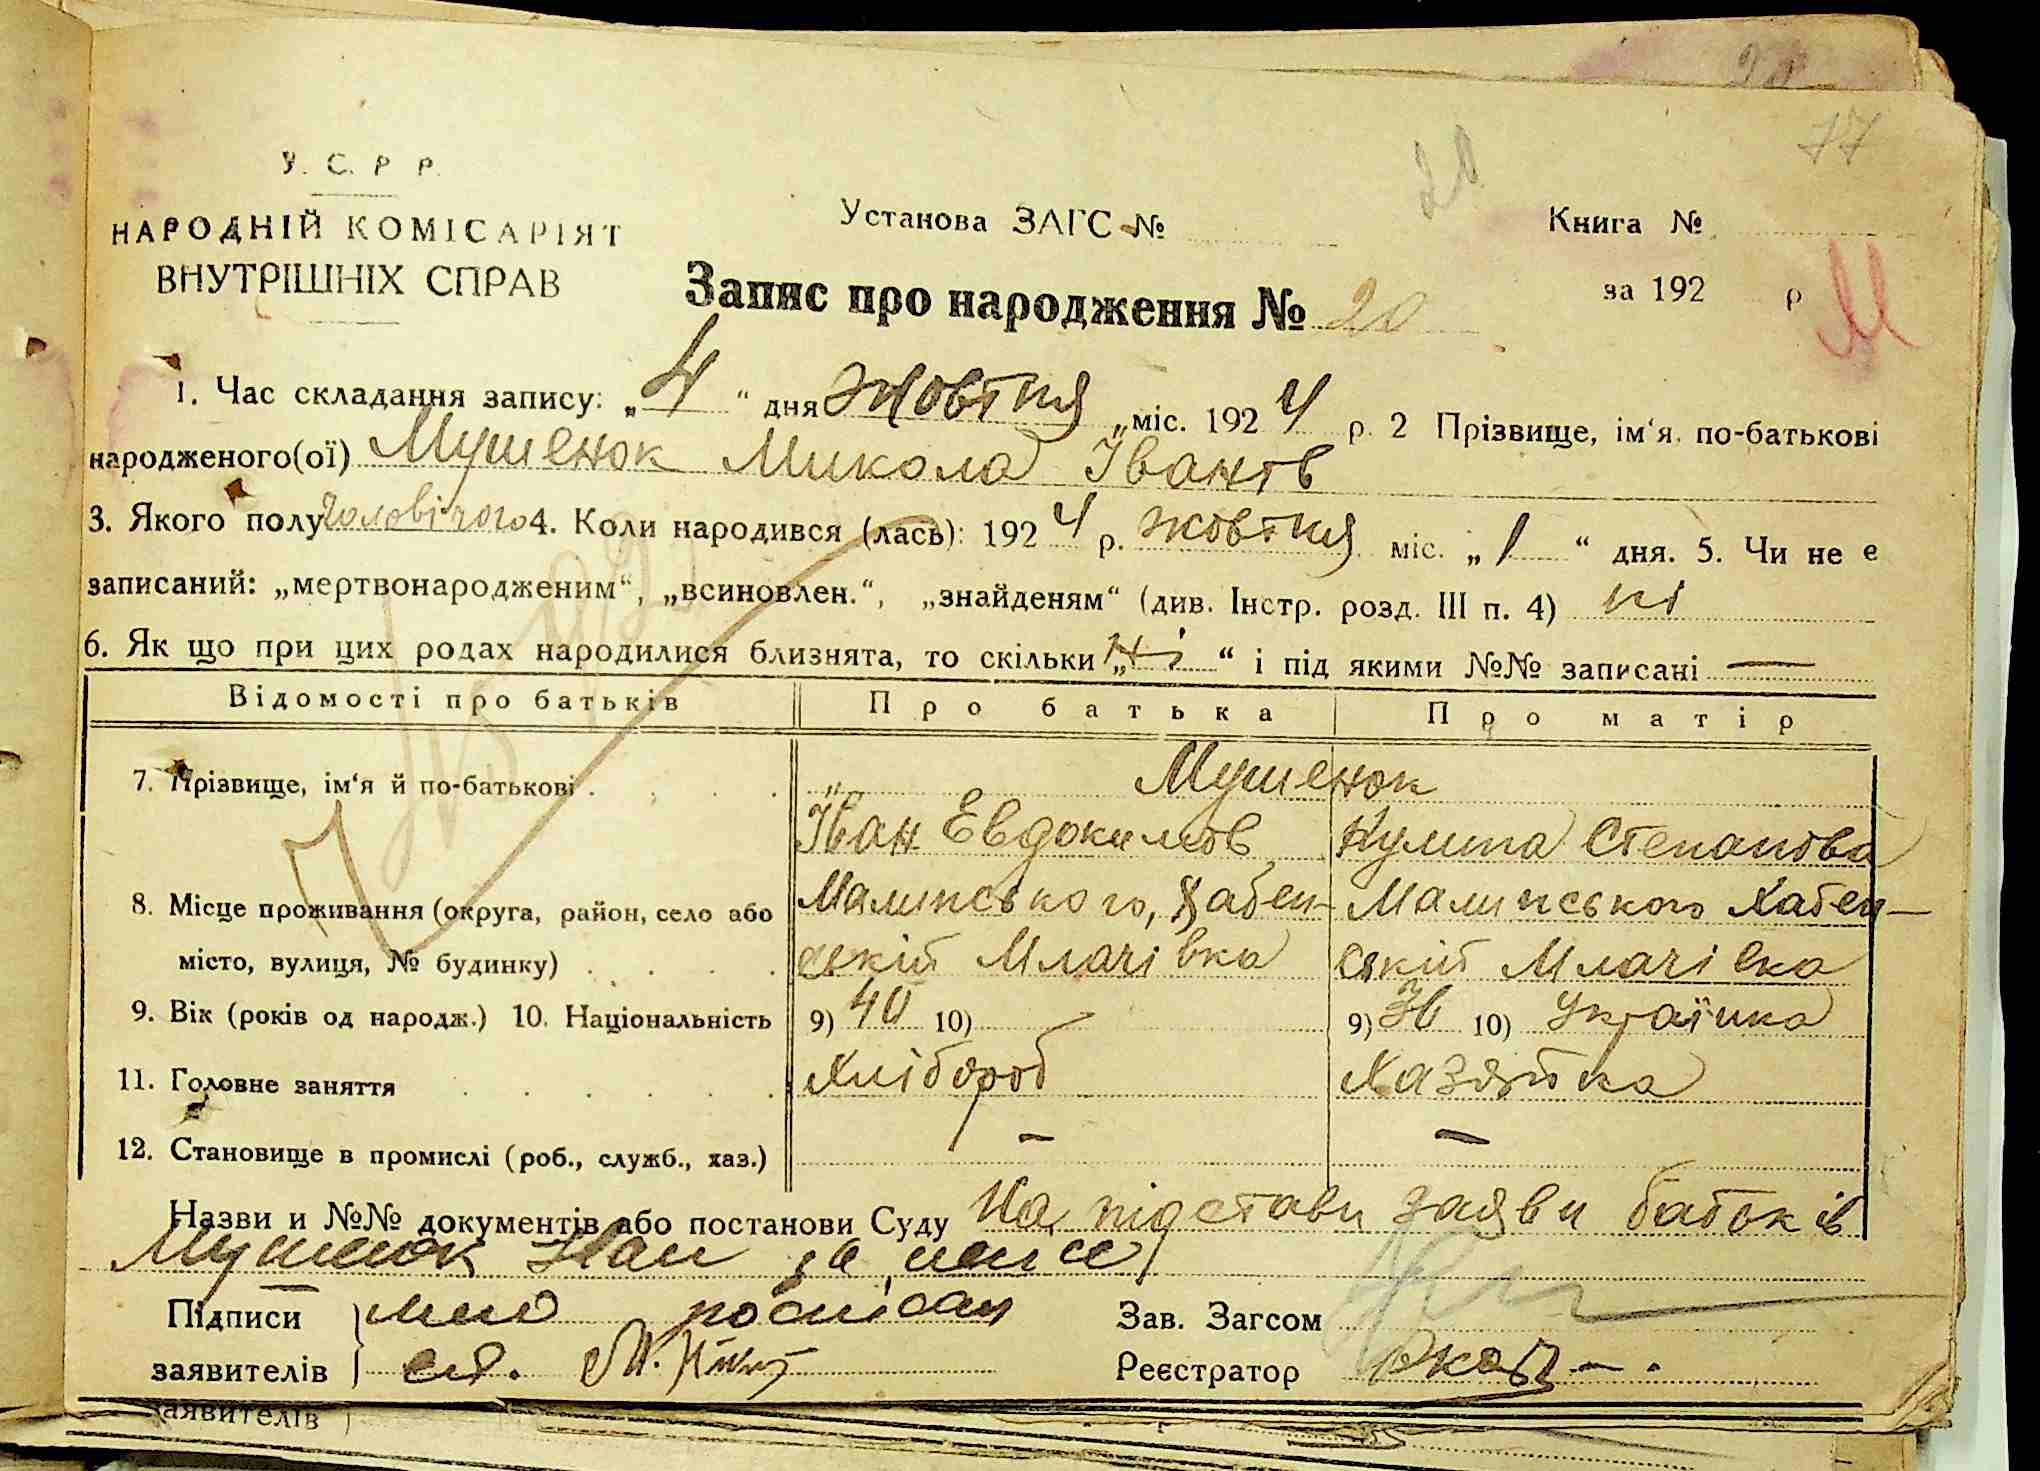 20
77
20
У. С. Р. Р.
НАРОДНІЙ КОМІСАРІЯТ
ВНУТРІШНІХ СПРАВ
Установа ЗАГС №
Книга №
за 192 р
М
Запис про народження № 20
1. Час складання запису: „4“ дня жовтня міс. 1924 р. 2 Прізвище, ім‘я, по-батькові
народженого(ої) Мушенок Микола Іванів
3. Якого полу чоловічого 4. Коли народився (лась): 1924 р. жовтня міс. „1“ дня. 5. Чи не є
записаний: „мертвонародженим“, „всиновлен.“, „знайденям“ (див. Інстр. розд. III п. 4) ні
6. Як що при цих родах народилися близнята, то скільки „ні“ і під якими №№ записані —
Відомості про батьків Про батька Про матір
7. Прізвище, ім‘я й по-батькові Мушенок
Іван Евдокимов Кулина Степанова
8. Місце проживання (округа, район, село або Малинського, Хабен- Малинського Хабен-
місто, вулиця, № будинку) ський Млачівка ський Млачівка
9. Вік (років од народж.) 10. Національність 9) 40 10) 9) 36 10) Українка
11. Головне заняття Хлібороб Хазяйка
12. Становище в промислі (роб., служб., хаз.) – –
Назви и №№ документів або постанови Суду На підстави заяви батьків
Мушенок
Підписи
заявителів
Зав. Загсом
Реєстратор
заявителів